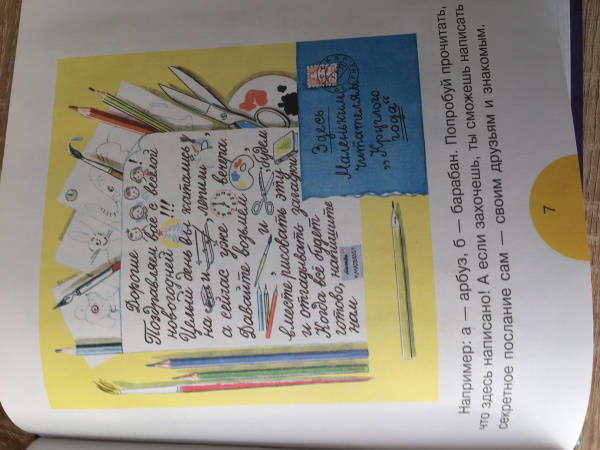 Дорогие !
Поздравляем вас с
новогодней !!!
Целый день вы катались
на и лепили ,
а сейчас уже вечера
Давайте возьмём ,
, и , будем
вместе рисовать эту
и отгадывать загадки.
Когда всё будет
готово, напишите
нам
Здесь
Маленьким
читателям
„Круглого
года“
Например: а — арбуз, б — барабан. Попробуй прочитать,
что здесь написано! А если захочешь, ты сможешь написать
секретное послание сам — своим друзьям и знакомым.
7